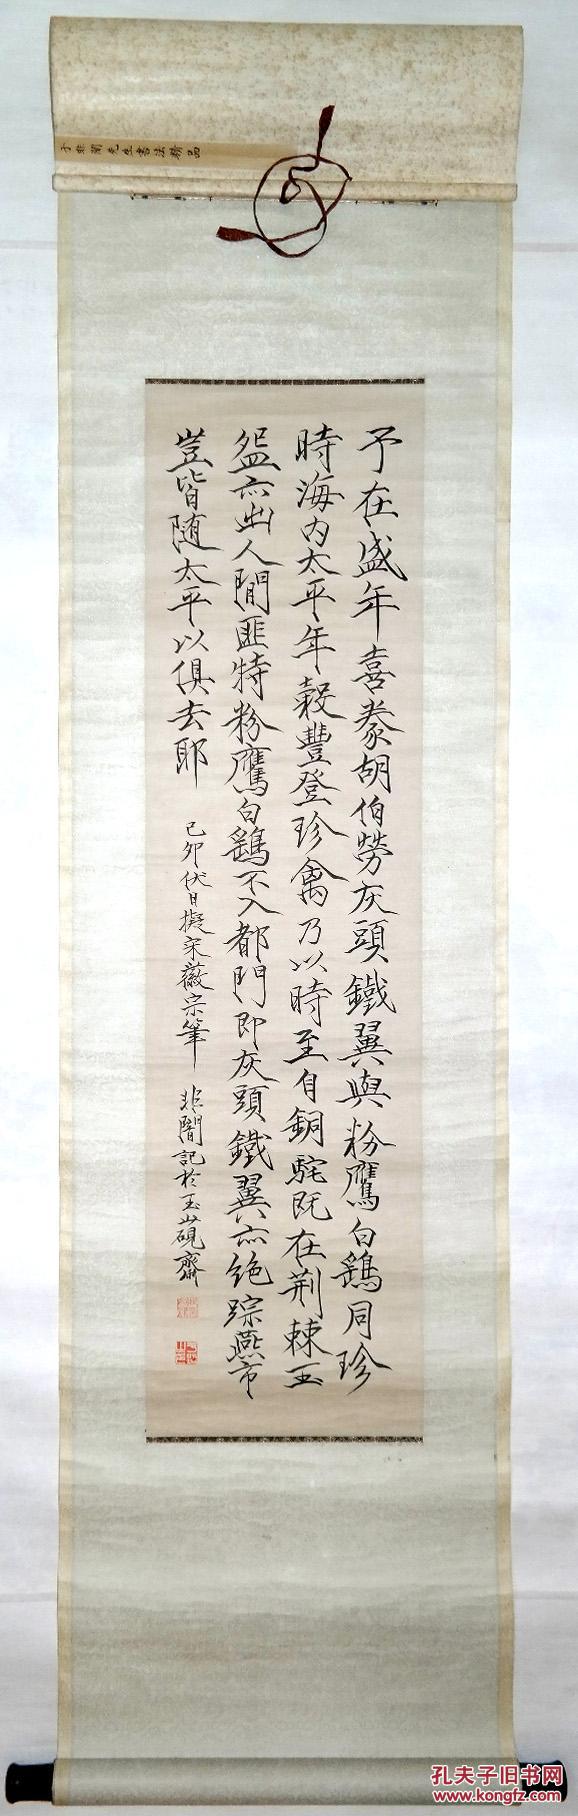 于非闇先生書法精品
予在盛年喜豢胡伯勞灰頭鐵翼與粉鷹白鷂同珍
時海内太平年穀豐登珍禽乃以時至自銅駝既在荆棘玉
盌亦出人間匪特粉鷹白鷂不入都門即灰頭鐵翼亦絶踪燕市
豈皆随太平以俱去耶
己卯伏日擬宋徽宗筆 非闇記於玉山硯齋
孔夫子旧书网
www.kongfz.com